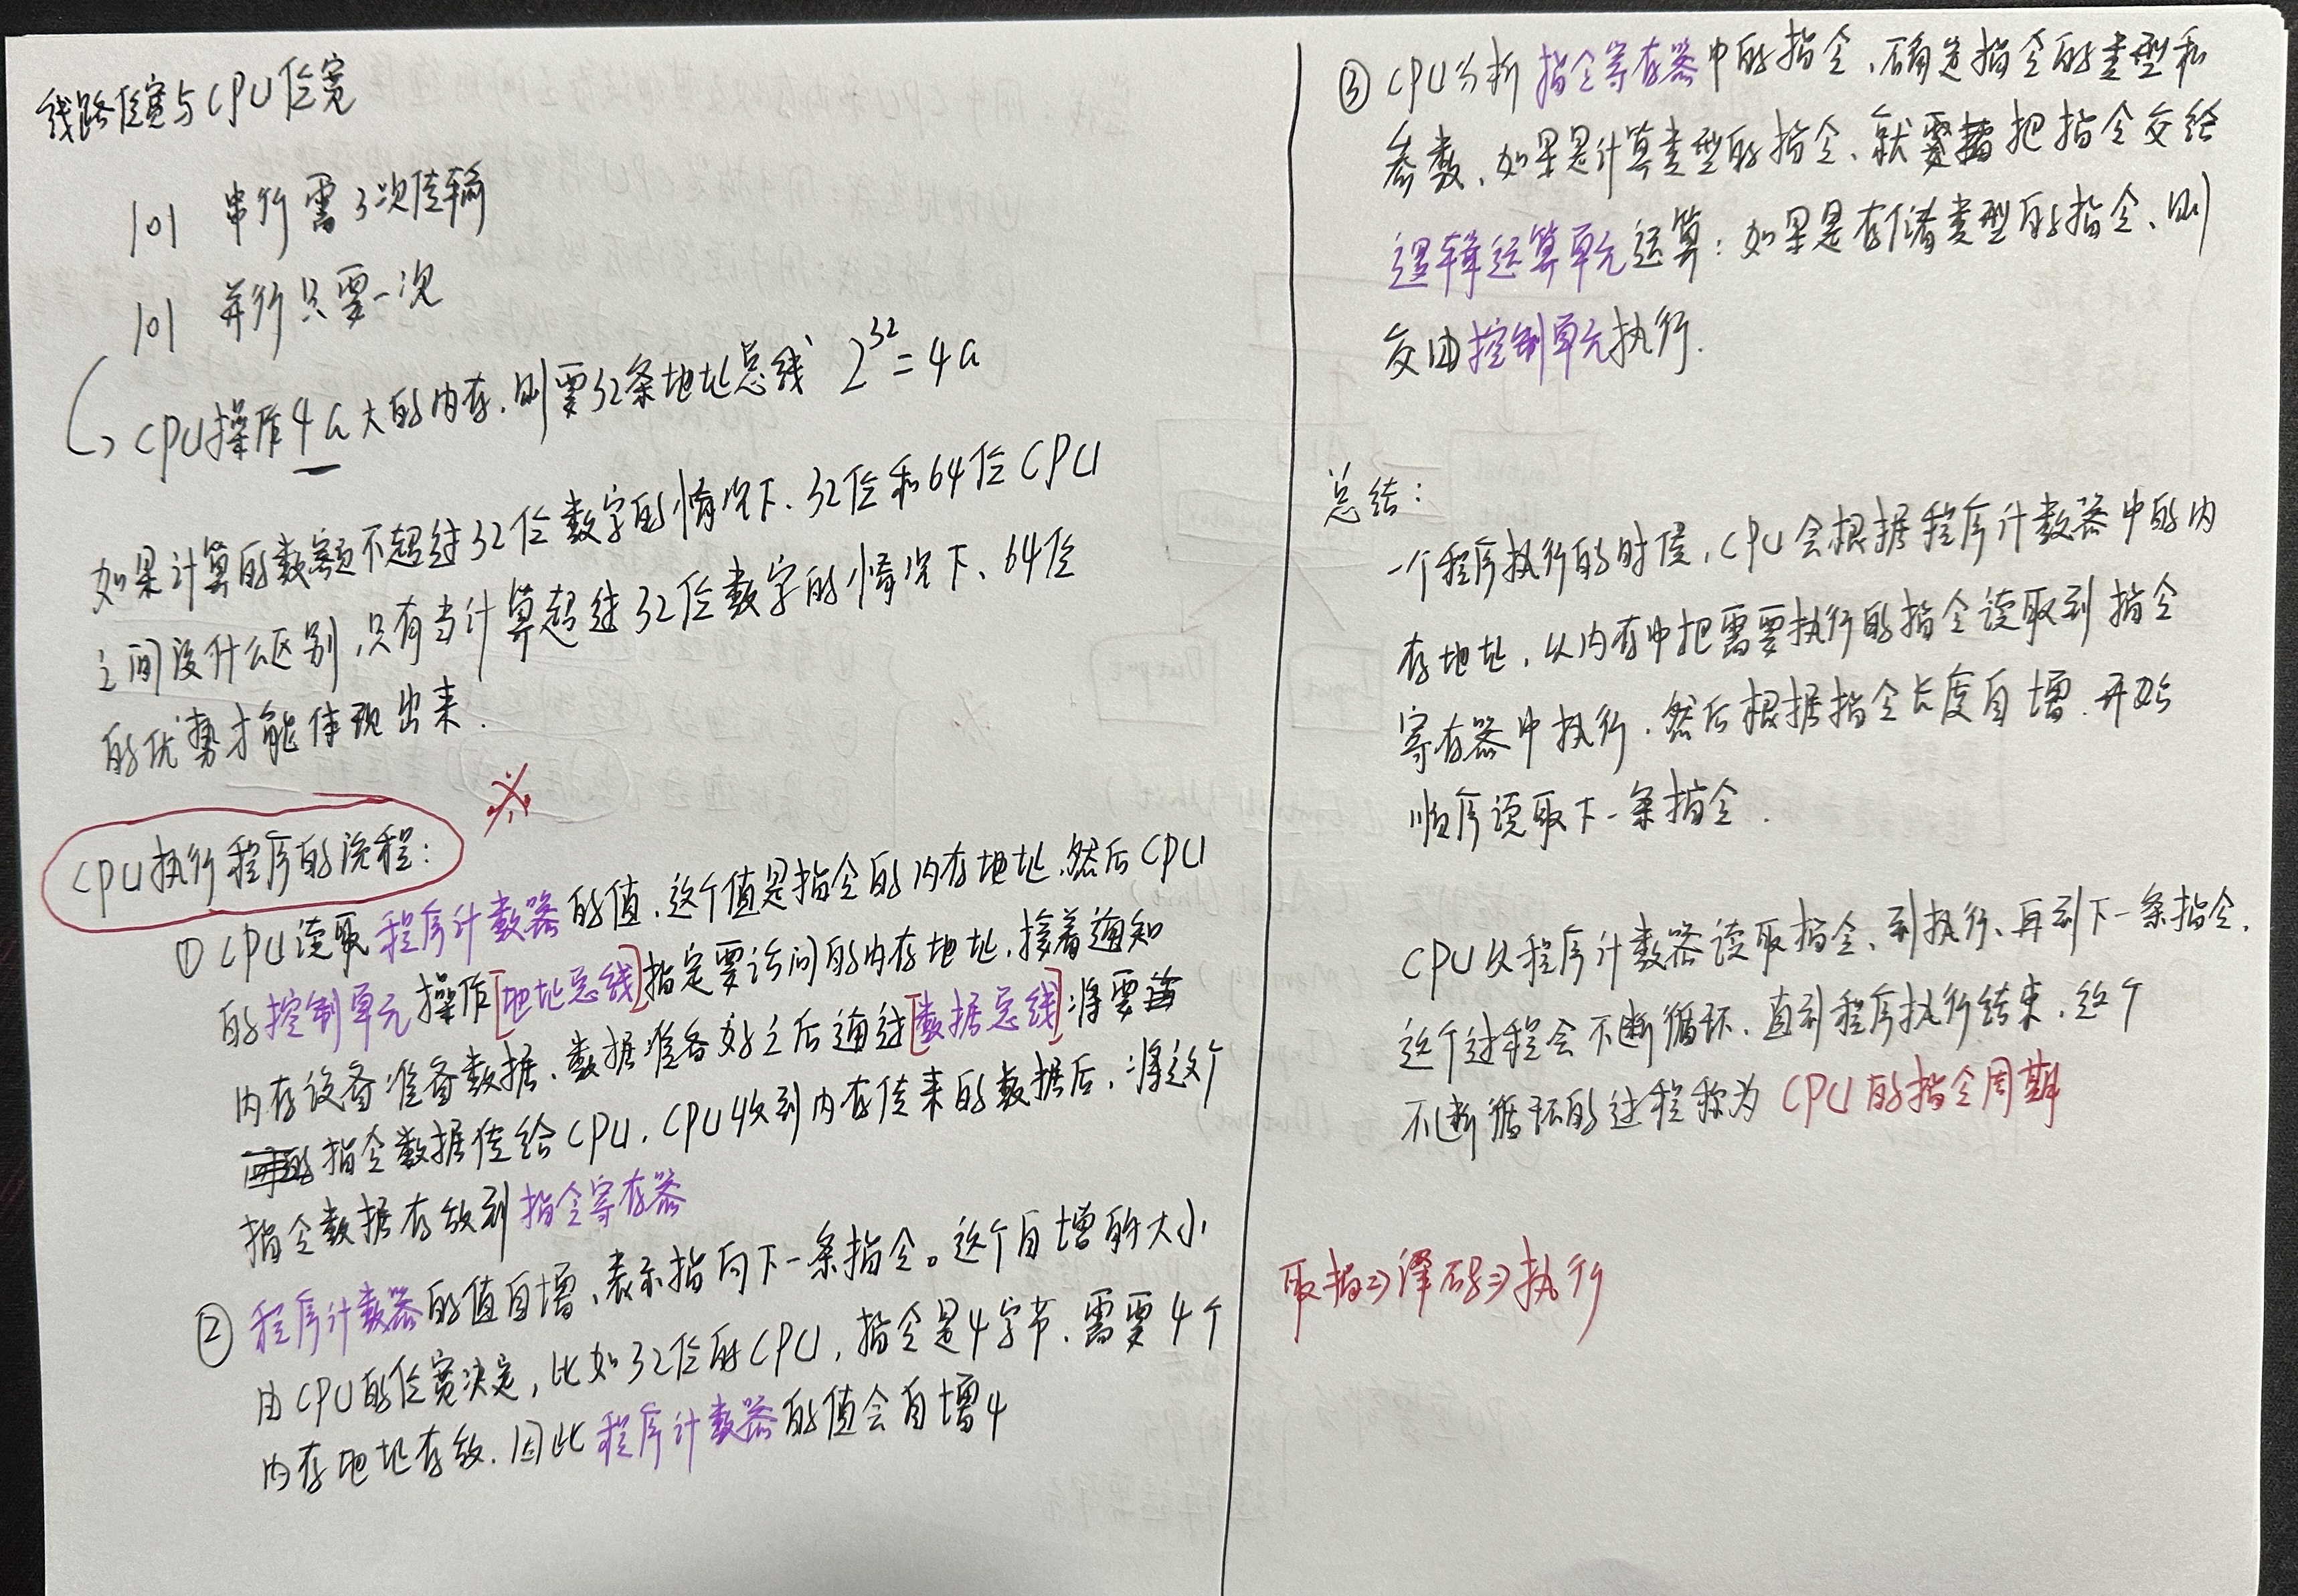 线路位宽与CPU位宽
101 串行需3次传输
101 并行只要一次
CPU操作4G大的内存,则要32条地址总线 2^32=4G
如果计算的数额不超过32位数字的情况下、32位和64位CPU
之间没什么区别,只有当计算超过32位数字的情况下、64位
的优势才能体现出来.
CPU执行程序的流程:
① CPU读取程序计数器的值、这个值是指令的内存地址、然后CPU
的控制单元操作[地址总线]指定要访问的内存地址、接着通知
内存设备准备数据、数据准备好之后通过[数据总线]将要
指令数据传给CPU、CPU收到内存传来的数据后、将这个
指令数据存放到指令寄存器
② 程序计数器的值自增、表示指向下一条指令。这个自增的大小
由CPU的位宽决定,比如32位的CPU,指令是4字节、需要4个
内存地址存放、因此程序计数器的值会自增4
③ CPU分析指令寄存器中的指令、确定指令的类型和
参数、如果是计算类型的指令、就要把指令交给
逻辑运算单元运算;如果是存储类型的指令、则
交由控制单元执行.
总结:
一个程序执行的时候,CPU会根据程序计数器中的内
存地址,从内存中把需要执行的指令读取到指令
寄存器中执行、然后根据指令长度自增、开始
顺序读取下一条指令.
CPU从程序计数器读取指令、到执行、再到下一条指令、
这个过程会不断循环、直到程序执行结束、这个
不断循环的过程称为CPU的指令周期
取指⇒译码⇒执行